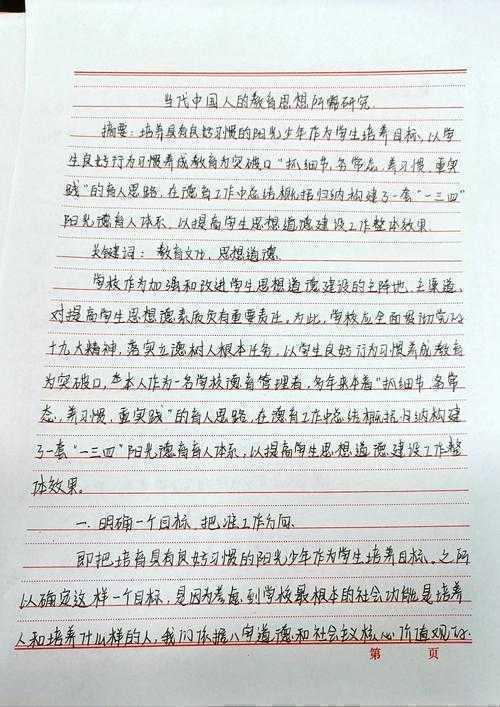 当代中国人的教育思想所需研究
摘要：培养具有良好习惯的阳光少年作为学生培养目标，以学
生良好行为习惯养成教育为突破口"抓细节，务常态，养习惯，重实
践"的育人思路，在德育工作中总结概括归纳构建了一套"一三四"
阳光德育人体系，以提高学生思想道德建设工作整体效果。
关键词：教育文化、思想道德
学校作为加强和改进学生思想道德建设的主阵地、主渠道，
对提高学生思想德素质负有重要责任。为此，学校应全面贯彻党的
十九大精神，落实立德树人根本任务，以学生良好行为习惯养成教育
为突破口，本人作为一名学校德育管理者，多年来本着"抓细节，务常
态，养习惯，重实践"的育人思路，在德育工作中总结概括归纳构建
了一套"一三四"阳光德育育人体系，以提高学生思想道德建设工作整
体效果。
一、明确一个目标，把准工作方向
即把培育具有良好习惯的阳光少年作为学生培养目标。之所
以确定这样一个目标，是因为考虑到学校最根本的社会功能是培养
人和培养什么样的人，我们依据八字道德和社会主义核心价值观的
第 页